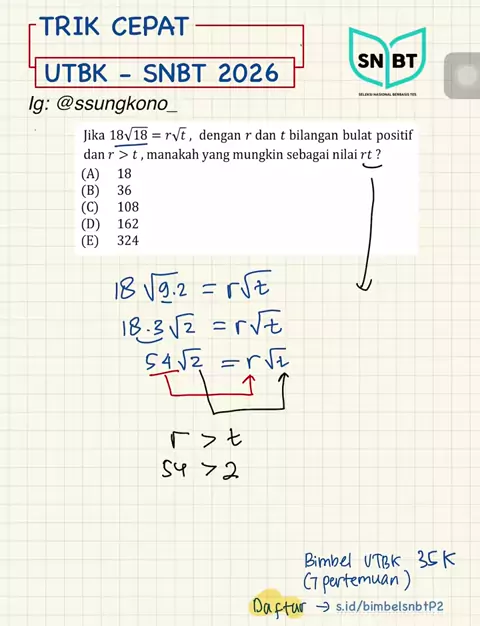 TRIK CEPAT
UTBK – SNBT 2026
SNBT
SELEKSI NASIONAL BERBASIS TES
Ig: @ssungkono_
Jika 18√18 = r√t, dengan r dan t bilangan bulat positif
dan r > t, manakah yang mungkin sebagai nilai rt ?
(A) 18
(B) 36
(C) 108
(D) 162
(E) 324
18 √9.2 = r√t
18.3√2 = r√t
54√2 = r√t
r > t
54 > 2
Bimbel UTBK 35K
(7 pertemuan)
Daftar → s.id/bimbelsnbtP2